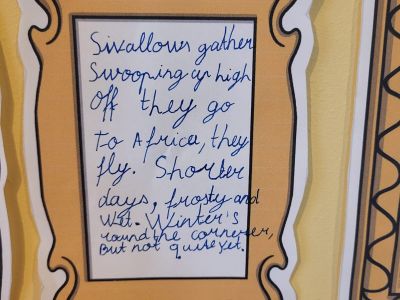 Swallows gather
Swooping up high
Off they go
To Africa, they
fly. Shorter
days, frosty and
Wet. Winter's
round the cornerer,
But not quite yet.